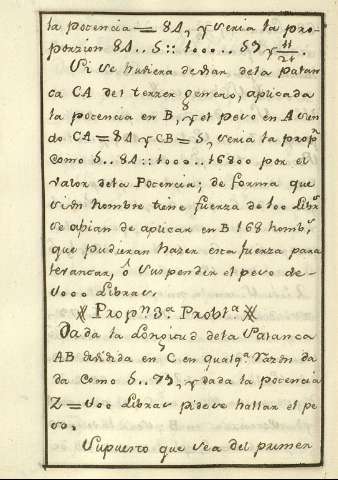 la potencia = 84, y seria la pro-
porzion 84..5::1000..59 y 11/21.
Si se hubiera de usar de la Palan
ca CA del terzer genero, aplicada
la potencia en B, y el peso en A sien
do CA = 84 y CB = 5, seria la propn
como 5..84::1000..16800 por el
valor de la Potencia; de forma que
si un hombre tiene fuerza de 100 Librs
se abian de aplicar en B 168 hombs
que pudieran hazer esta fuerza para
levantar, ò suspender el peso de
1000 Libras.
Propn 3a Probla
Dada la Longitud de la Palanca
AB dividida en C en qualqa razon da
da como 5..79, y dada la potencia
Z = 100 Libras pidese hallar el pe
so.
Supuesto que sea del primer